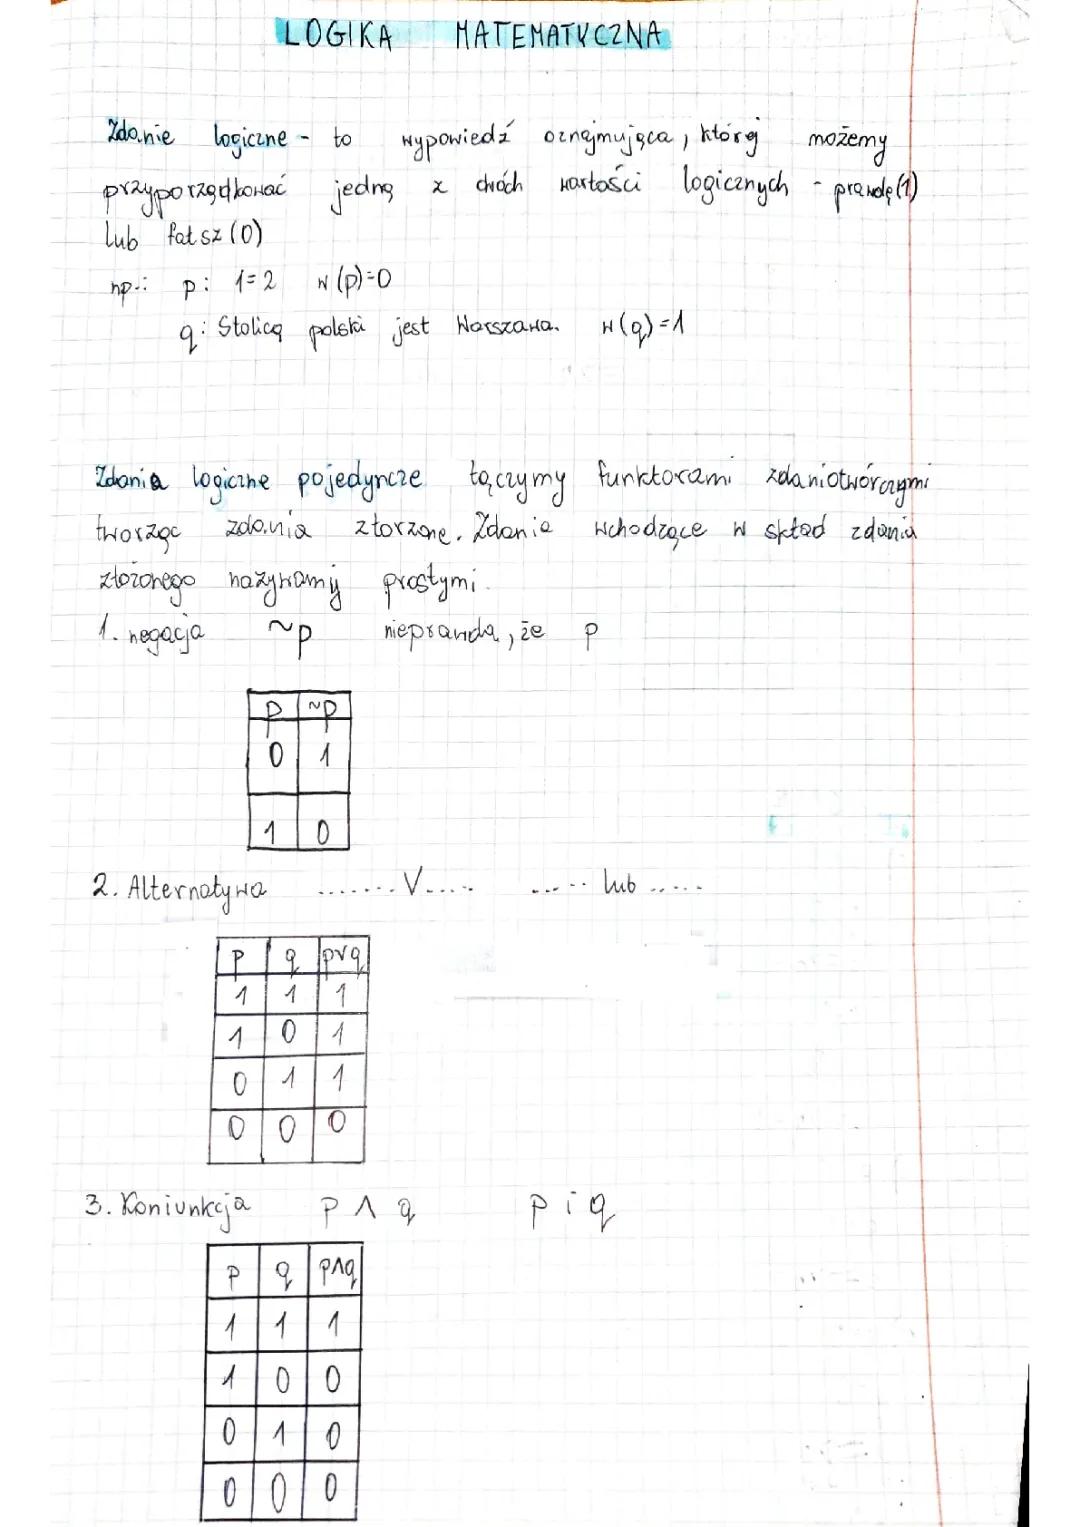 LOGIKA MATEMATYCZNA
Zdanie logiczne - to wypowiedź oznajmująca, której możemy
przyporządkować jedną z dwóch wartości logicznych - prawdę (1)
lub fałsz (0)
np.: p: 1=2 w(p)=0
q: Stolicą polski jest Warszawa. w(q)=1
Zdania logiczne pojedyncze łączymy funktorami zdaniotwórczymi
tworząc zdania złożone. Zdania wchodzące w skład zdania
złożonego nazywamy prostymi.
1. negacja ~p nieprawda, że p
p ~p
0 1
1 0
2. Alternatywa ....... V ..... ..... lub .....
p q p∨q
1 1 1
1 0 1
0 1 1
0 0 0
3. Koniunkcja p ∧ q p i q
p q p∧q
1 1 1
1 0 0
0 1 0
0 0 0